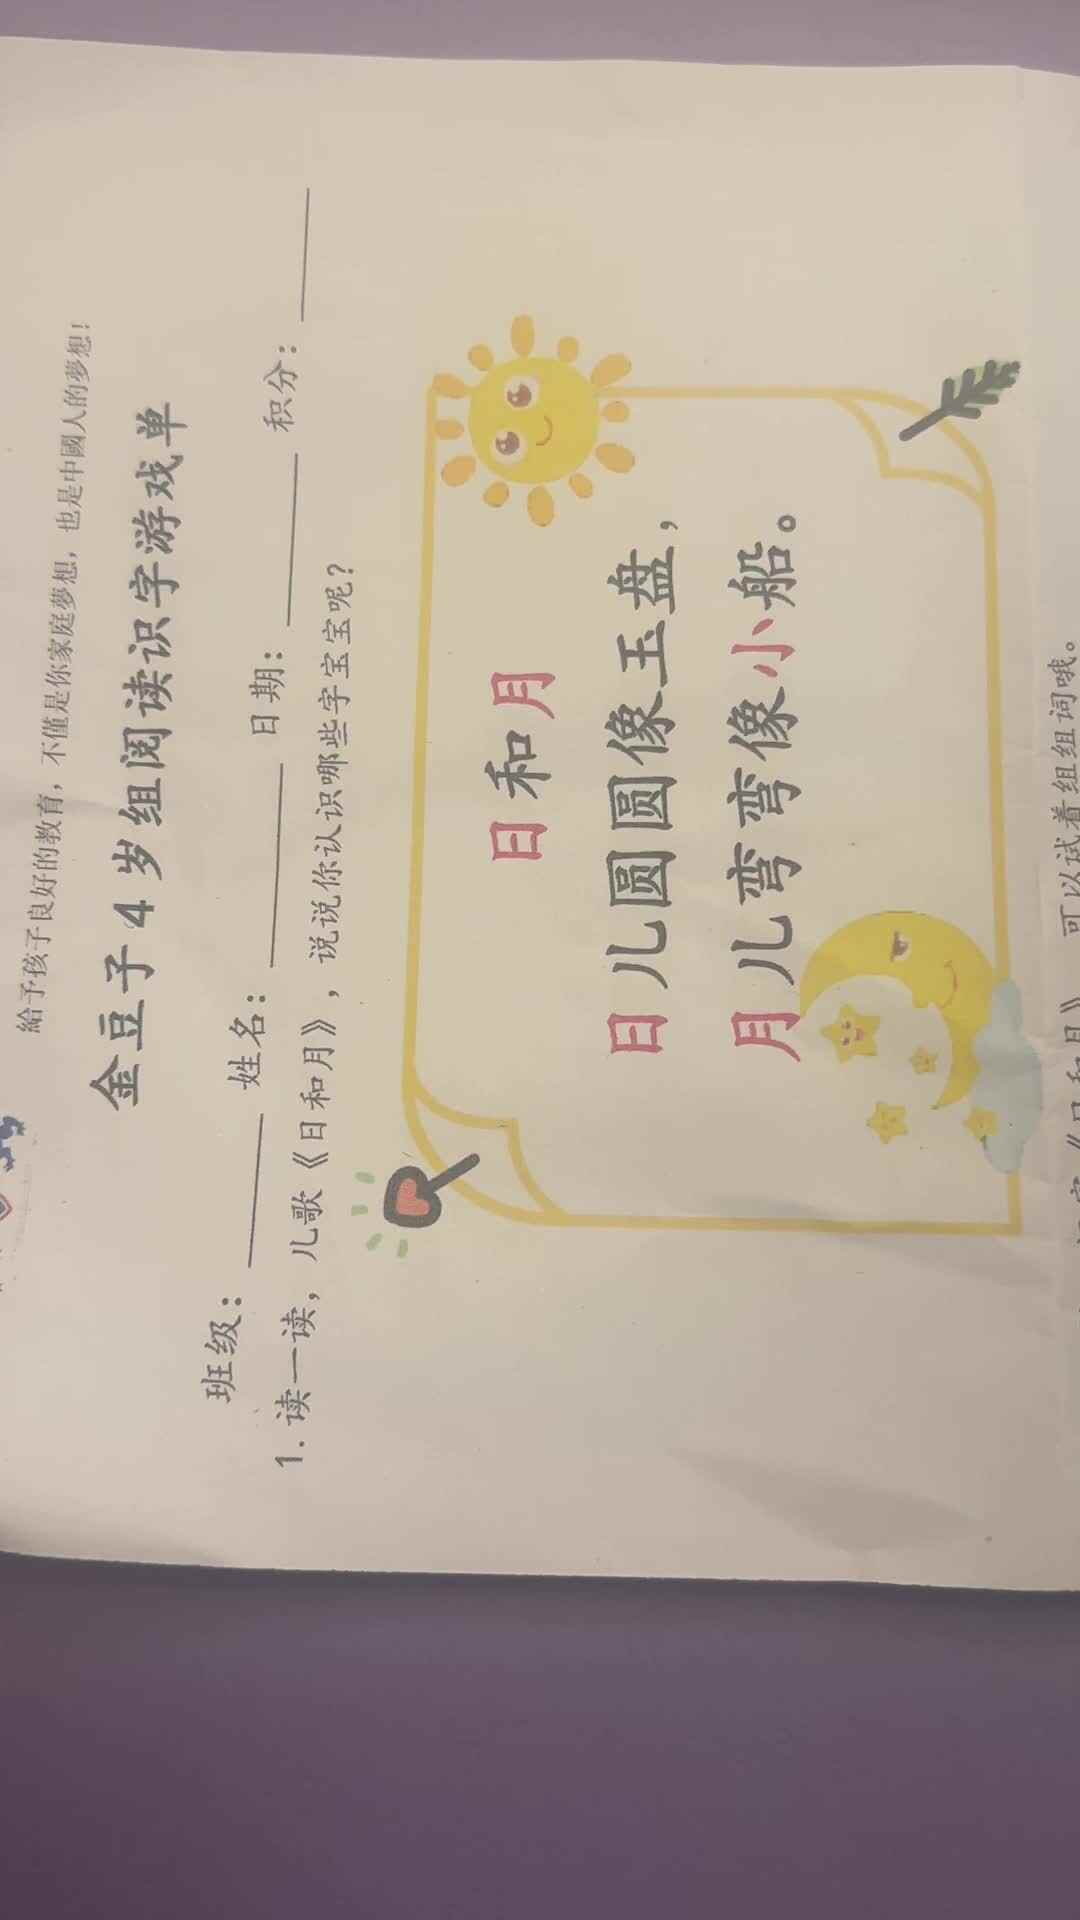 給予孩子良好的教育，不僅是你家庭夢想，也是中國人的夢想！
金豆子4岁组阅读识字游戏单
班级：________ 姓名：________ 日期：________ 积分：________
1.读一读，儿歌《日和月》，说说你认识哪些字宝宝呢？
日和月
日儿圆圆像玉盘，
月儿弯弯像小船。
《日和月》，可以试着组组词哦。